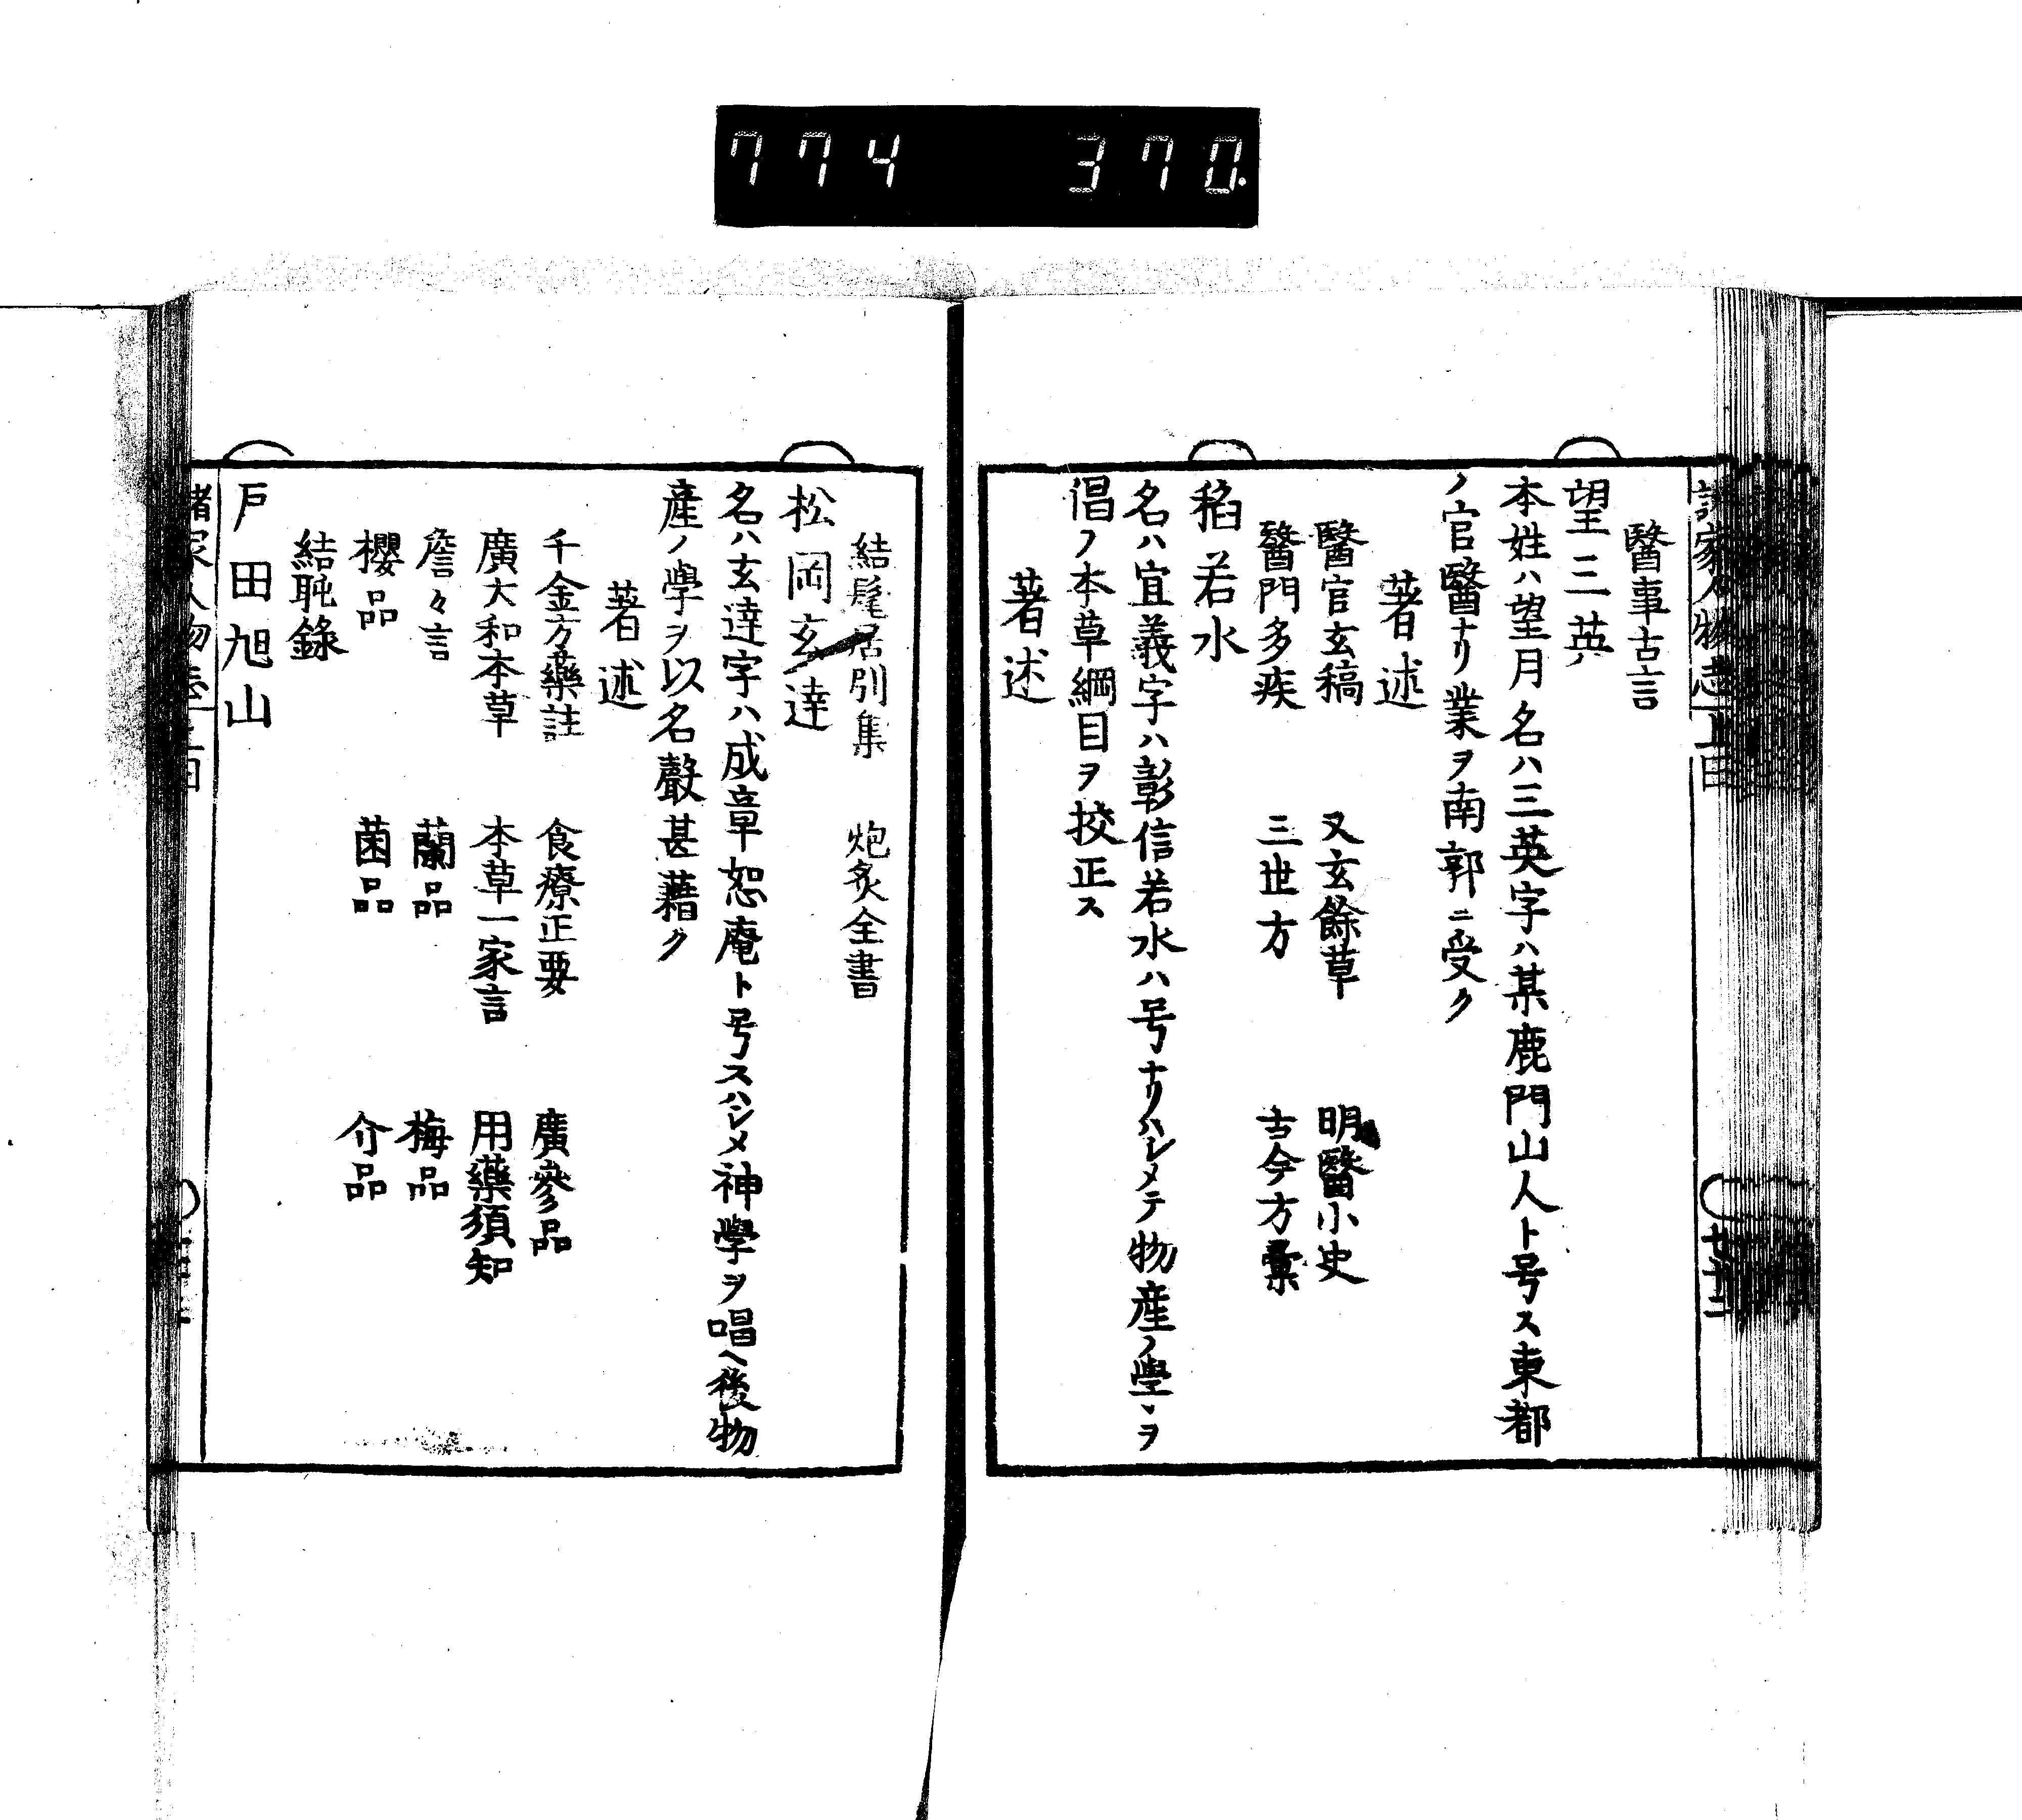 774 370
醫事古言
望三英
本姓ハ望月名ハ三英字ハ某鹿門山人ト号ス東都
ノ官醫ナリ業ヲ南郭ニ受ク
著述
醫官玄稿 又玄餘草 明醫小史
醫門多疾 三世方 古今方彙
稻若水
名ハ宜義字ハ彰信若水ハ号ナリハシメテ物産ノ學ヲ
倡フ本草綱目ヲ挍正ス
著述
結髦居別集 炮炙全書
松岡玄達
名ハ玄達字ハ成章恕庵ト号スハシメ神學ヲ唱ヘ後物
産ノ學ヲ以名聲甚藉ク
著述
千金方藥註 食療正要 廣參品
廣大和本草 本草一家言 用藥須知
詹々言 蘭品 梅品
櫻品 菌品 介品
結毦錄
戸田旭山